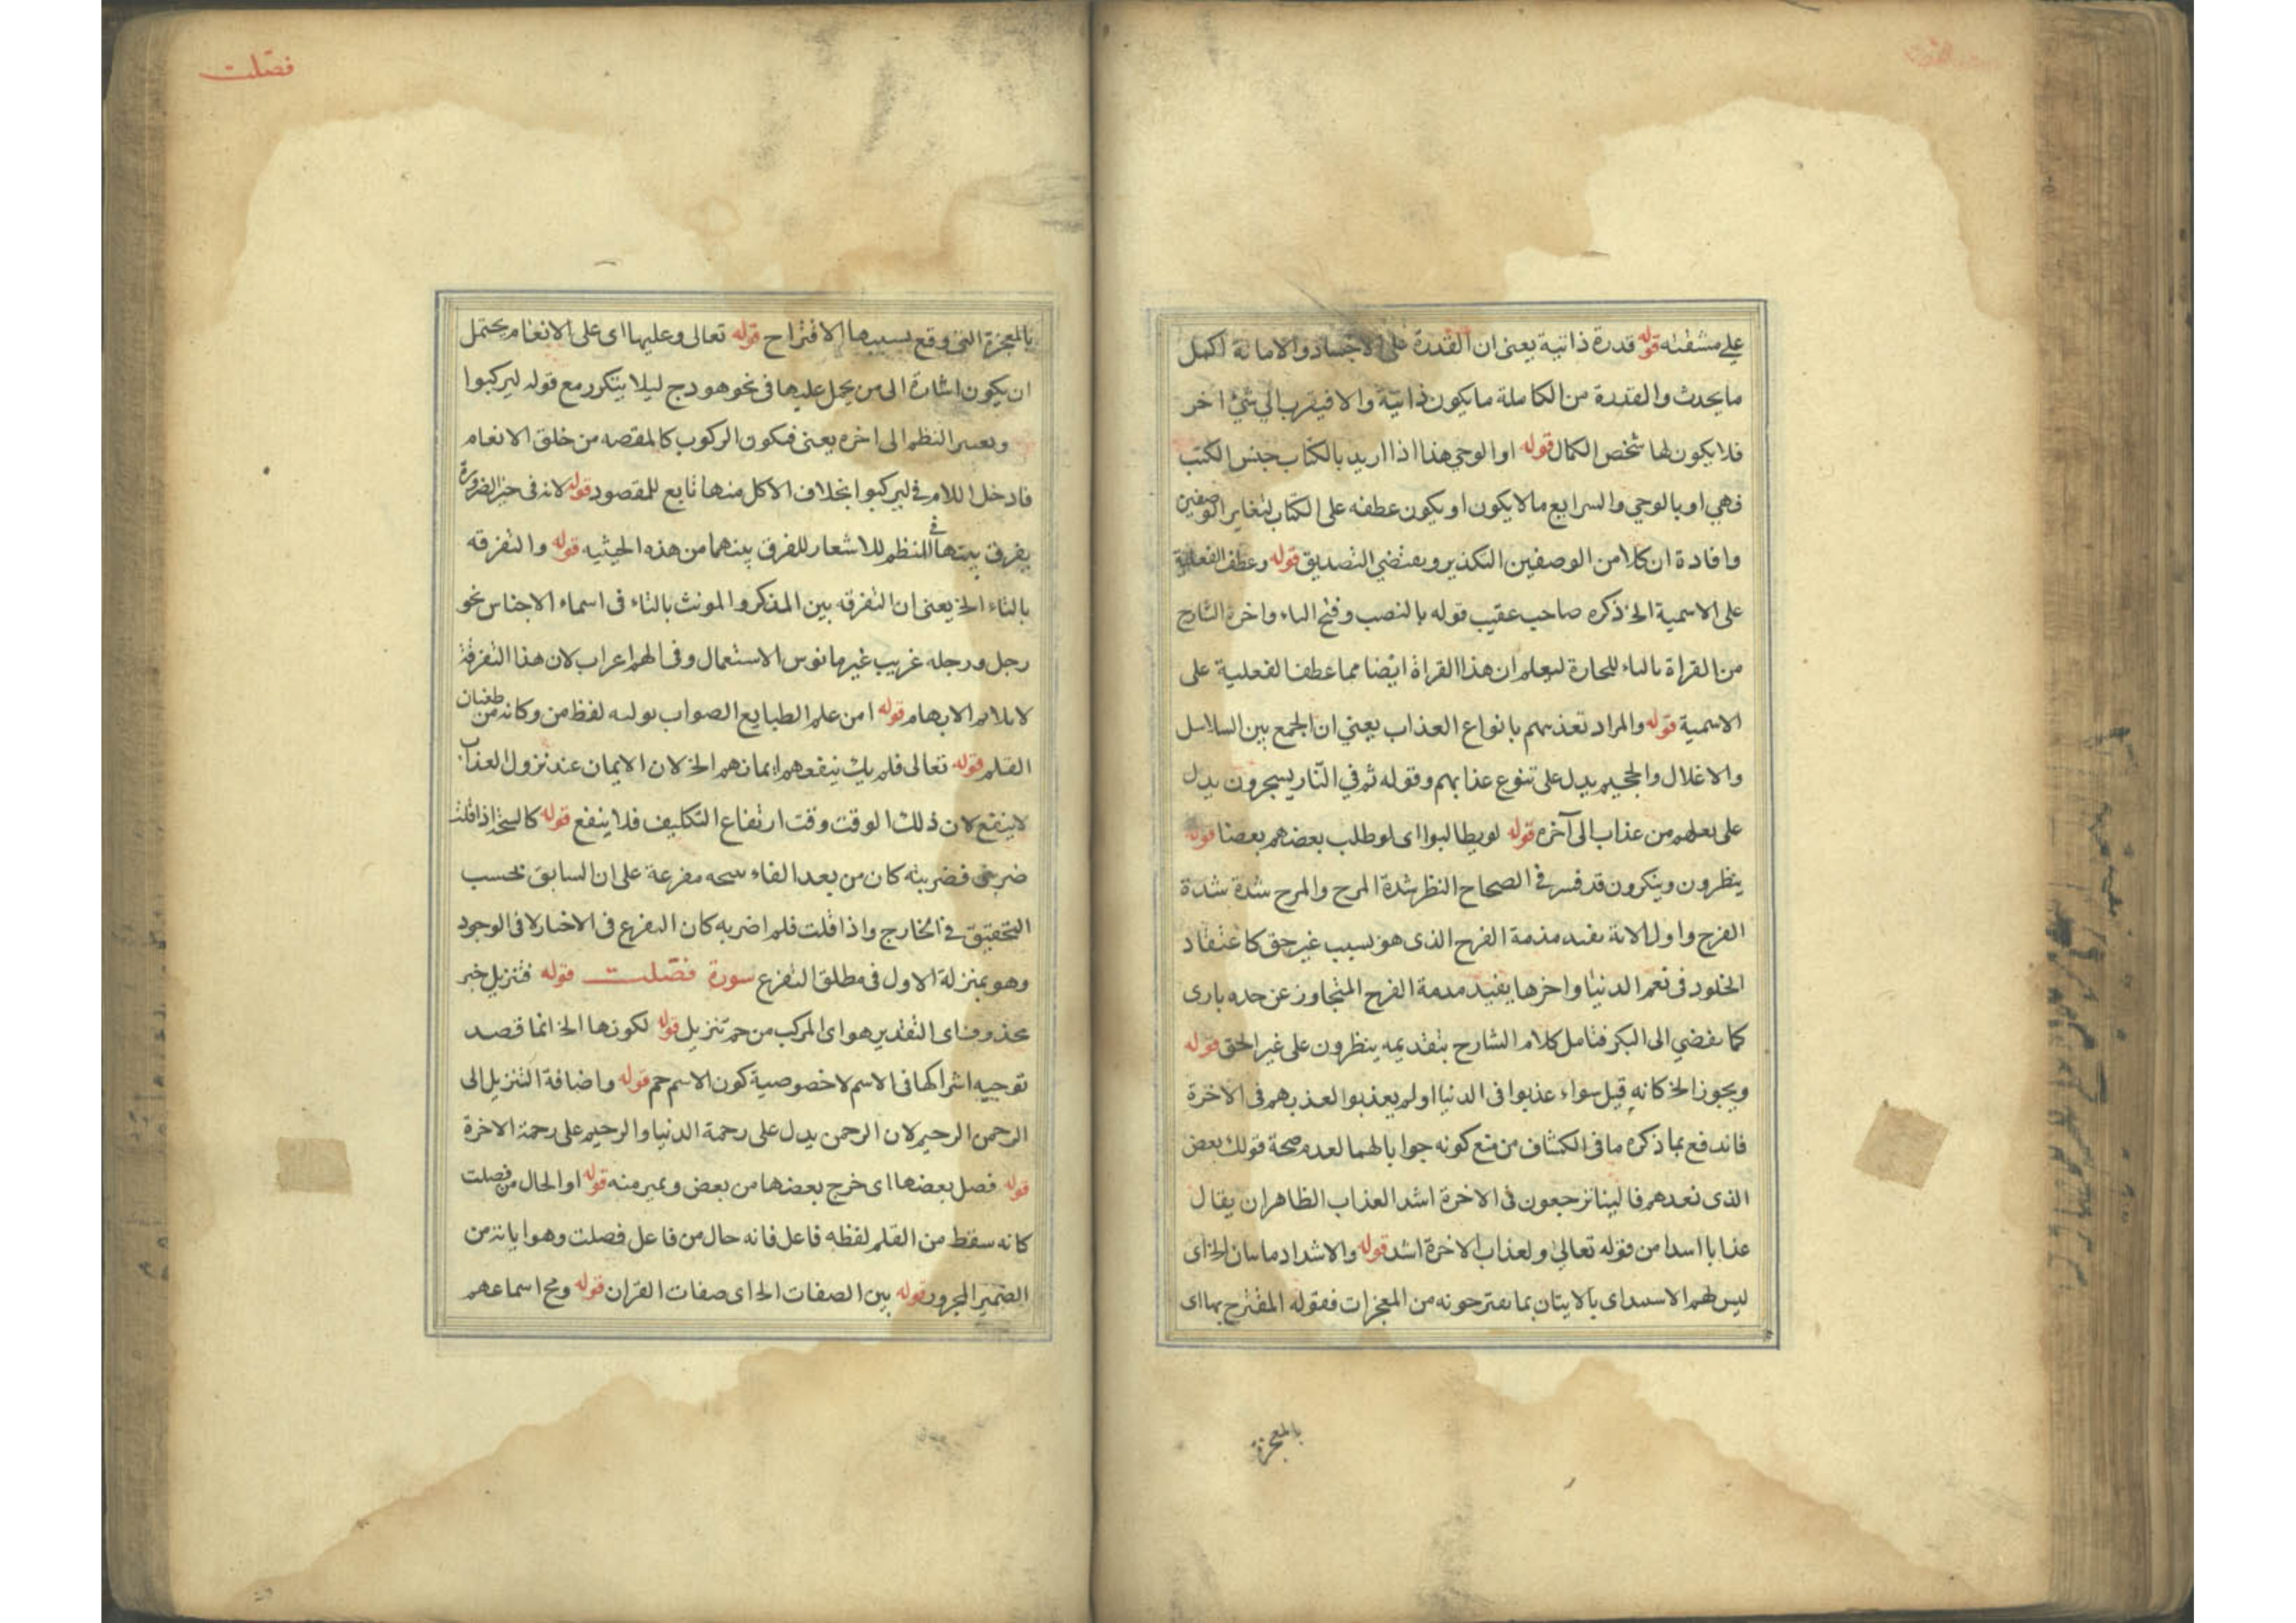 على مشقته قوله قدرة ذاتية يعنى ان القدرة على الاجساد والاماتة اكمل
ما يحدث والقدرة من الكاملة ما يكون ذاتية والا فيقرب الي شئ اخر
فلا يكون لها شخص الكمال قوله او الوحي هذا اذا اريد بالكتاب جنس الكتب
فهي او بالوحي والسرايع مالا يكون او يكون عطفه على الكتاب لتغاير الوصفين
وافادة ان كلا من الوصفين التكذير ويقتضي التصديق قوله وعطف الفعلية
على الاسمية الخ ذكره صاحب عقيب قوله بالنصب وفتح الياء واخره الشارح
من القراة بالياء للحارة ليعلم ان هذا القراة ايضا مما عطف الفعلية على
الاسمية قوله والمراد تعذيبهم بانواع العذاب يعني ان الجمع بين السلاسل
والاغلال والجحيم يدل على تنوع عذابهم وقوله ثم في النار يسجرون يدل
على من عذاب الى آخره قوله لو يطالبوا اى لو طلب بعضهم بعضا قوله
ينظرون ويتكرون قد فسر في الصحاح النظر شدة المرح والمرح شدة شدة
الفرح واول الاية يفيد مذمة الفرح الذى هو بسبب غير حق كاعتقاد
الخلود في نعم الدنيا واخرها يفيد مدمة الفرح المتجاوز عن حده بارى
كما يفضي الى البكر فتامل كلام الشارح بتقديمه ينظرون على غير الحق قوله
ويجوز الخ كانه قيل سواء عذبوا فى الدنيا او لم يعذبوا لعذبهم فى الاخرة
فاندفع بما ذكره ما فى الكشاف من منع كونه جوابا لهما لعدم صحة قولك بعض
الذى نعدهم فالينا ترجعون فى الاخرة اشد العذاب الظاهر ان يقال
عذابا اسدا من قوله تعالى ولعذاب الاخرة اشد قوله والاشداد ماسان الخ اى
ليس لهم الاسداى بالايتان بما يقترحونه من المعجزات فقوله المقترح بها اى
بالمعجزة
فصّلت
بالمعجزة التى وقع بسببها الاقتراح قوله تعالى وعليها اى على الانعام يحتمل
ان يكون اشارة الى من يحمل عليها فى نحو هودج ليلا يتكرر مع قوله ليركبوا
وتغيير النظم الى اخره يعنى فيكون الركوب كالمقصه من خلق الانعام
فادخل اللام فى ليركبوا بخلاف الاكل منها تابع للمقصود قوله لانه فى حيز الضرورة
يفرق بيتها فى للنظم للاشعار للفرق بينهما من هذه الحيثيه قوله والتفرقه
بالتاء الخ يعنى ان التفرقه بين المذكر والمونث بالتاء فى اسماء الاجناس نحو
رجل ورجله غريب غير مانوس الاستعمال وفى الهم اعراب لان هذا التفرقة
لا يلايم الابهام قوله امن علم الطبايع الصواب بوليه لفظ من وكانه من طغيان
القلم قوله تعالى فلم يك ينفعهم ايمانهم الخ لان الايمان عند نزول العذاب
لا ينفع لان ذلك الوقت وقت ارتفاع التكليف فلا ينفع قوله كالنتيجة اذا قلت
ضربنى فضربته كان من بعد الفاء مفرعة على ان السابق بحسب
التحقيق فى الخارج واذا قلت فلم اضربه كان التفرع فى الاخبار لا فى الوجود
وهو بمنزلة الاول فى مطلق التفرع سورة فصّلت قوله فتنزيل خبر
محذوف اى التقدير هو اى المركب من حم تنزيل قوله لكونها الخ انما قصد
توجيه اشراكها فى الاسم لا خصوصية كون الاسم حم قوله واضافة التنزيل الى
الرحمن الرحيم لان الرحمن يدل على رحمة الدنيا والرحيم على رحمة الاخرة
قوله فصل بعضها اى خرج بعضها من بعض ويميز منه قوله او الحال من فصلت
كانه سقط من القلم لفظه فاعل فانه حال من فاعل فصلت وهو اياته من
الضمير المجرور قوله بين الصفات الخ اى صفات القران قوله ومج اسماعهم